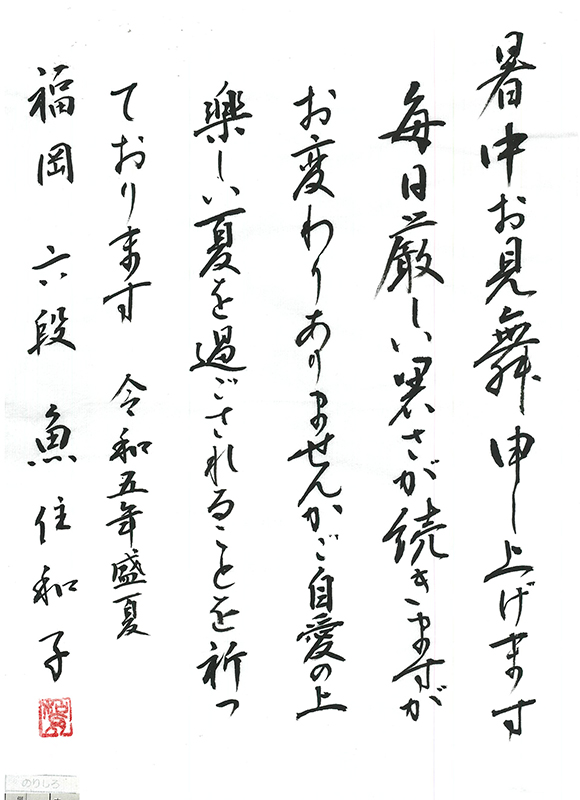 暑中お見舞申し上げます
毎日厳しい暑さが続きますが
お変わりありませんかご自愛の上
楽しい夏を過ごされることを祈っ
ております 令和五年盛夏
福岡 六段 魚住和子
のりしろ